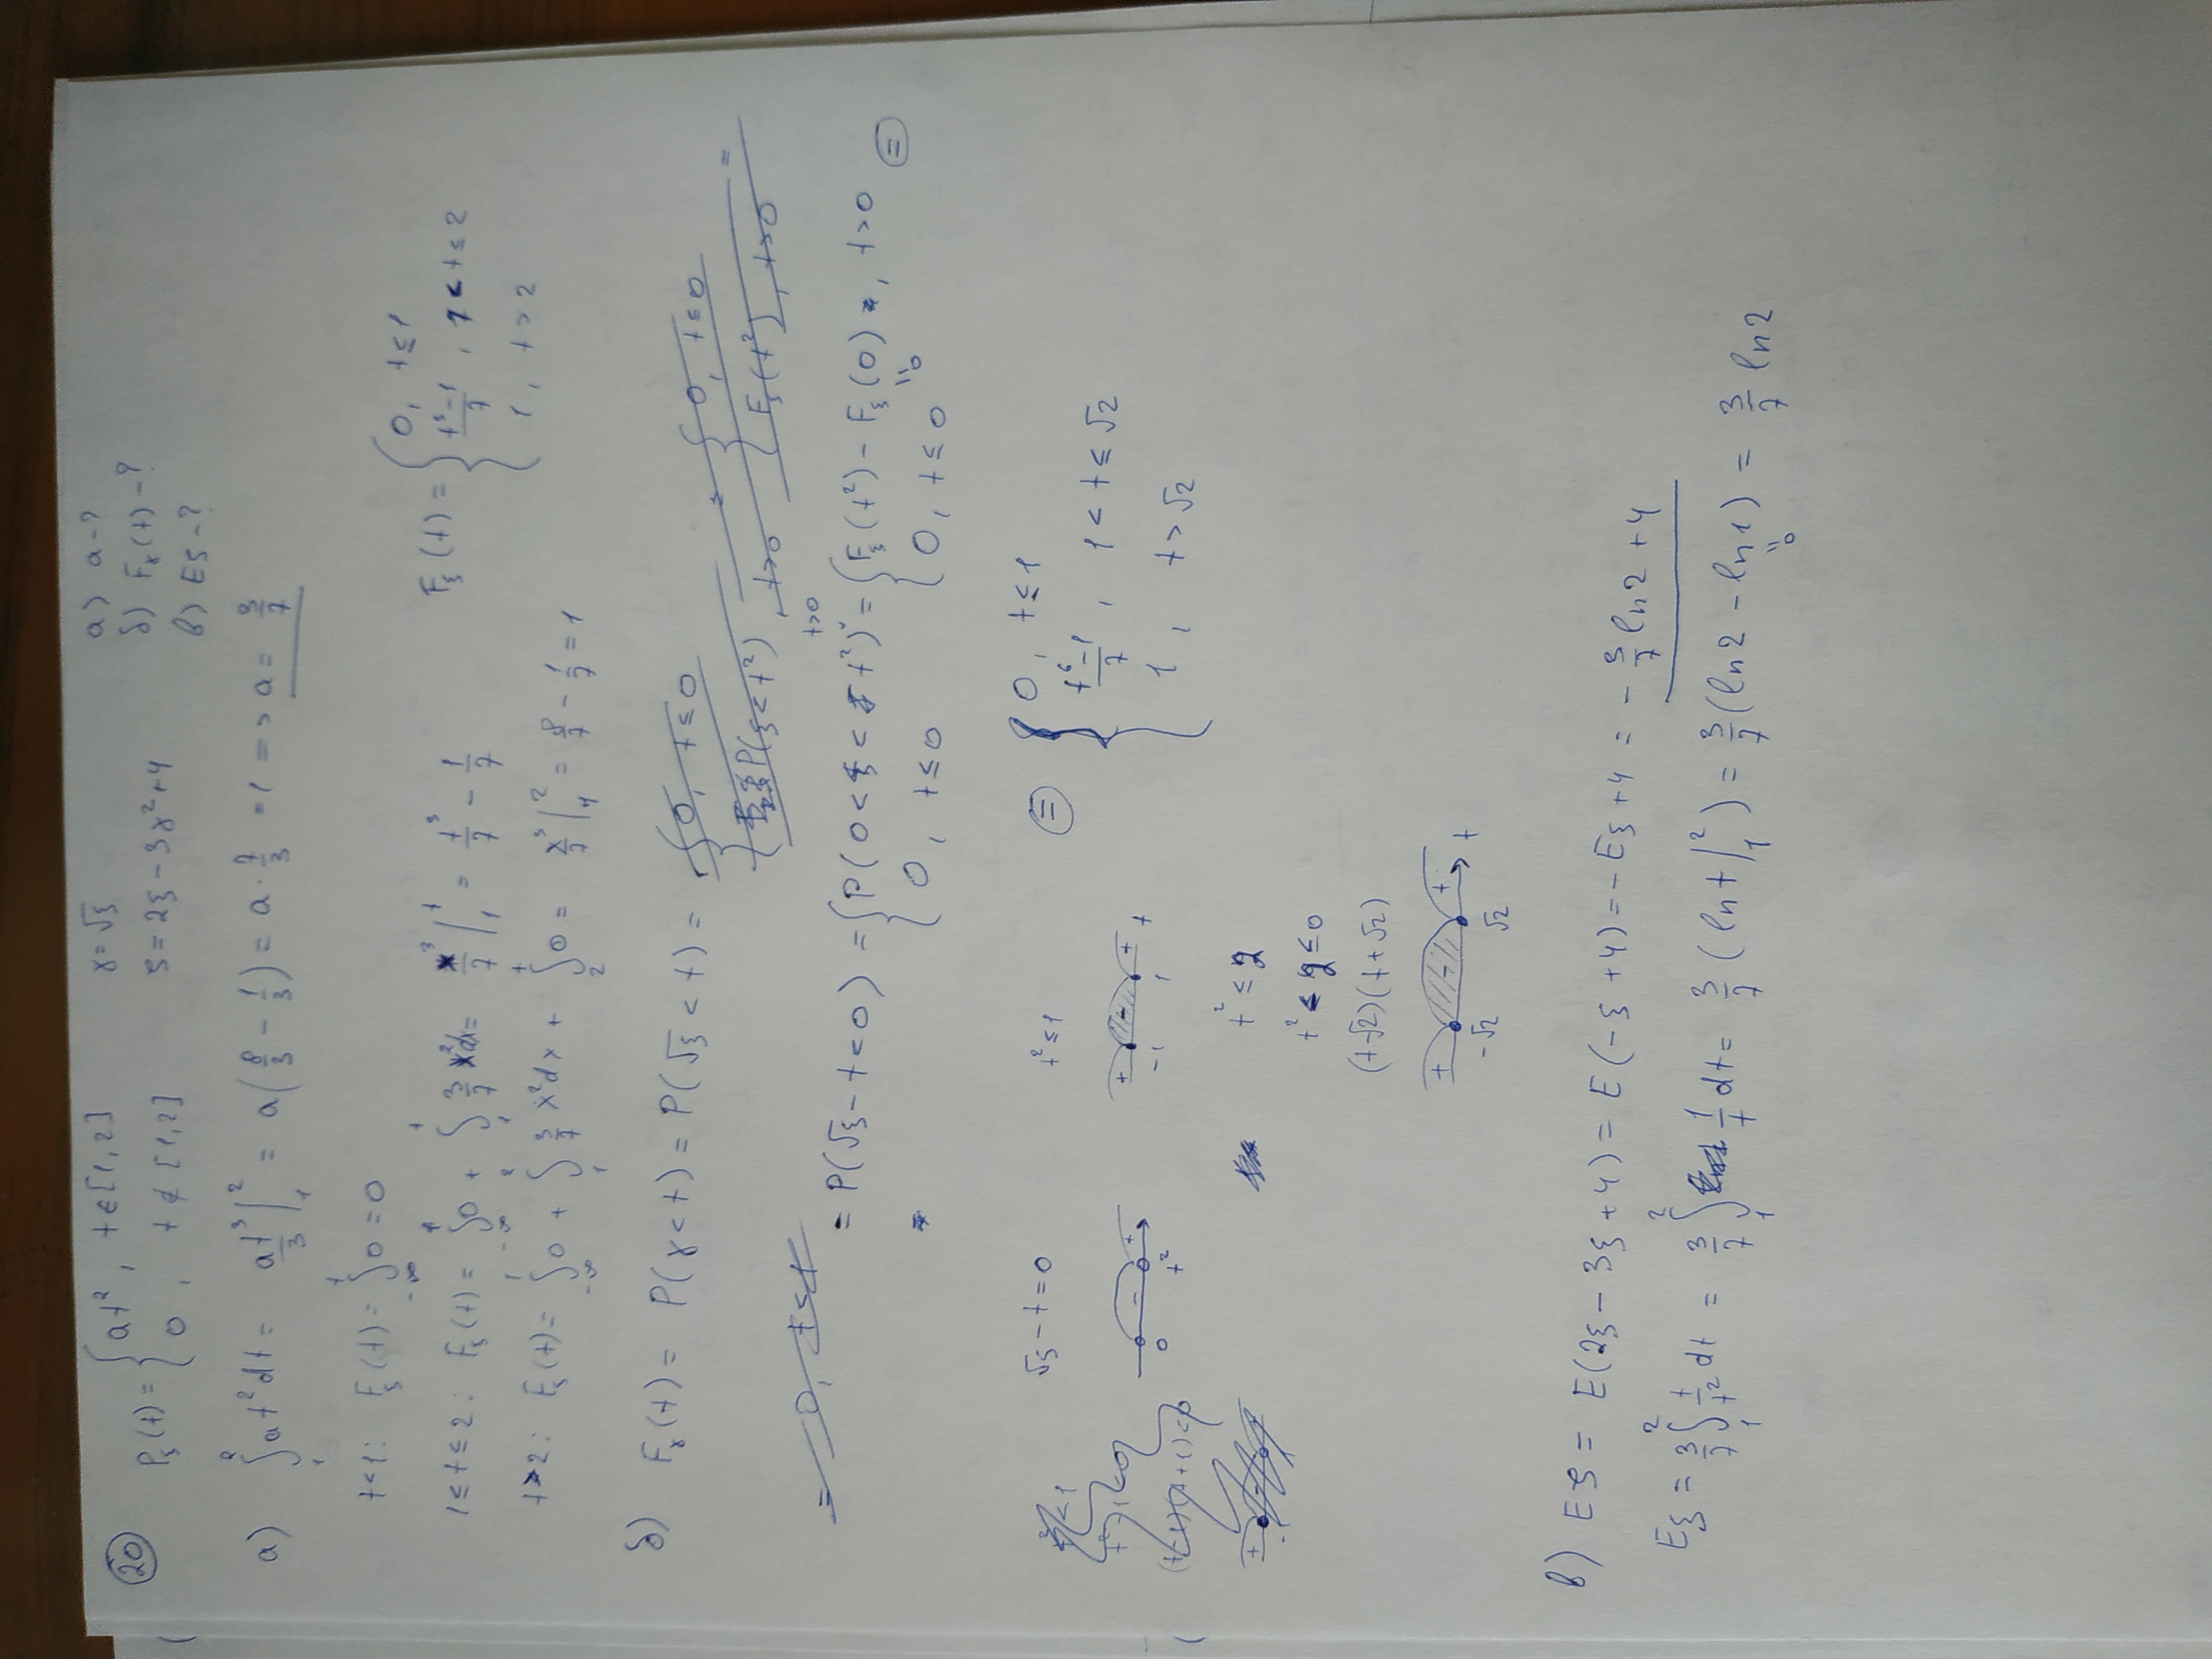 20
P_ξ(t) = { at², t ∈ [1, 2]    γ = √ξ    а) a - ?
0, t ∉ [1, 2]    ζ = 2ξ - 3γ² + 4    б) F_γ(t) - ?
в) Eζ - ?
а) ∫₁² at² dt = at³/3 |₁² = a(8/3 - 1/3) = a · 7/3 = 1 => a = 3/7
t < 1: F_ξ(t) = ∫_{-∞}^t 0 = 0
1 ≤ t ≤ 2: F_ξ(t) = ∫_{-∞}^1 0 + ∫₁^t 3/7 x² dx = x³/7 |₁^t = t³/7 - 1/7
t > 2: F_ξ(t) = ∫_{-∞}^1 0 + ∫₁² 3/7 x² dx + ∫₂^t 0 = x³/7 |₁² = 8/7 - 1/7 = 1
F_ξ(t) = { 0, t ≤ 1
(t³-1)/7, 1 < t ≤ 2
1, t > 2
б) F_γ(t) = P(γ < t) = P(√ξ < t) = { 0, t ≤ 0 = { 0, t ≤ 0
P(ξ < t²), t > 0    F_ξ(t²), t > 0 =
= 0, t ≤
= P(√ξ - t < 0) = { P(0 < ξ < t²), t > 0 = { F_ξ(t²) - F_ξ(0), t > 0 =
0, t ≤ 0    0, t ≤ 0    "0
√ξ - t = 0    t² ≤ 1
- +
0 t²
+ - + t
-1 1
= { 0, t ≤ 1
(t⁶-1)/7, 1 < t ≤ √2
1, t > √2
< 1
(t-1)(t+1) < 0
+ -
t² ≤ 2
t² - 2 ≤ 0
(t-√2)(t+√2)
+ - + t
-√2 √2
в) Eζ = E(2ξ - 3ξ + 4) = E(-ξ + 4) = -Eξ + 4 = -3/7 ln2 + 4
Eξ = 3/7 ∫₁² t/t² dt = 3/7 ∫₁² 1/t dt = 3/7 (ln t |₁²) = 3/7 (ln2 - ln1) = 3/7 ln2
"0